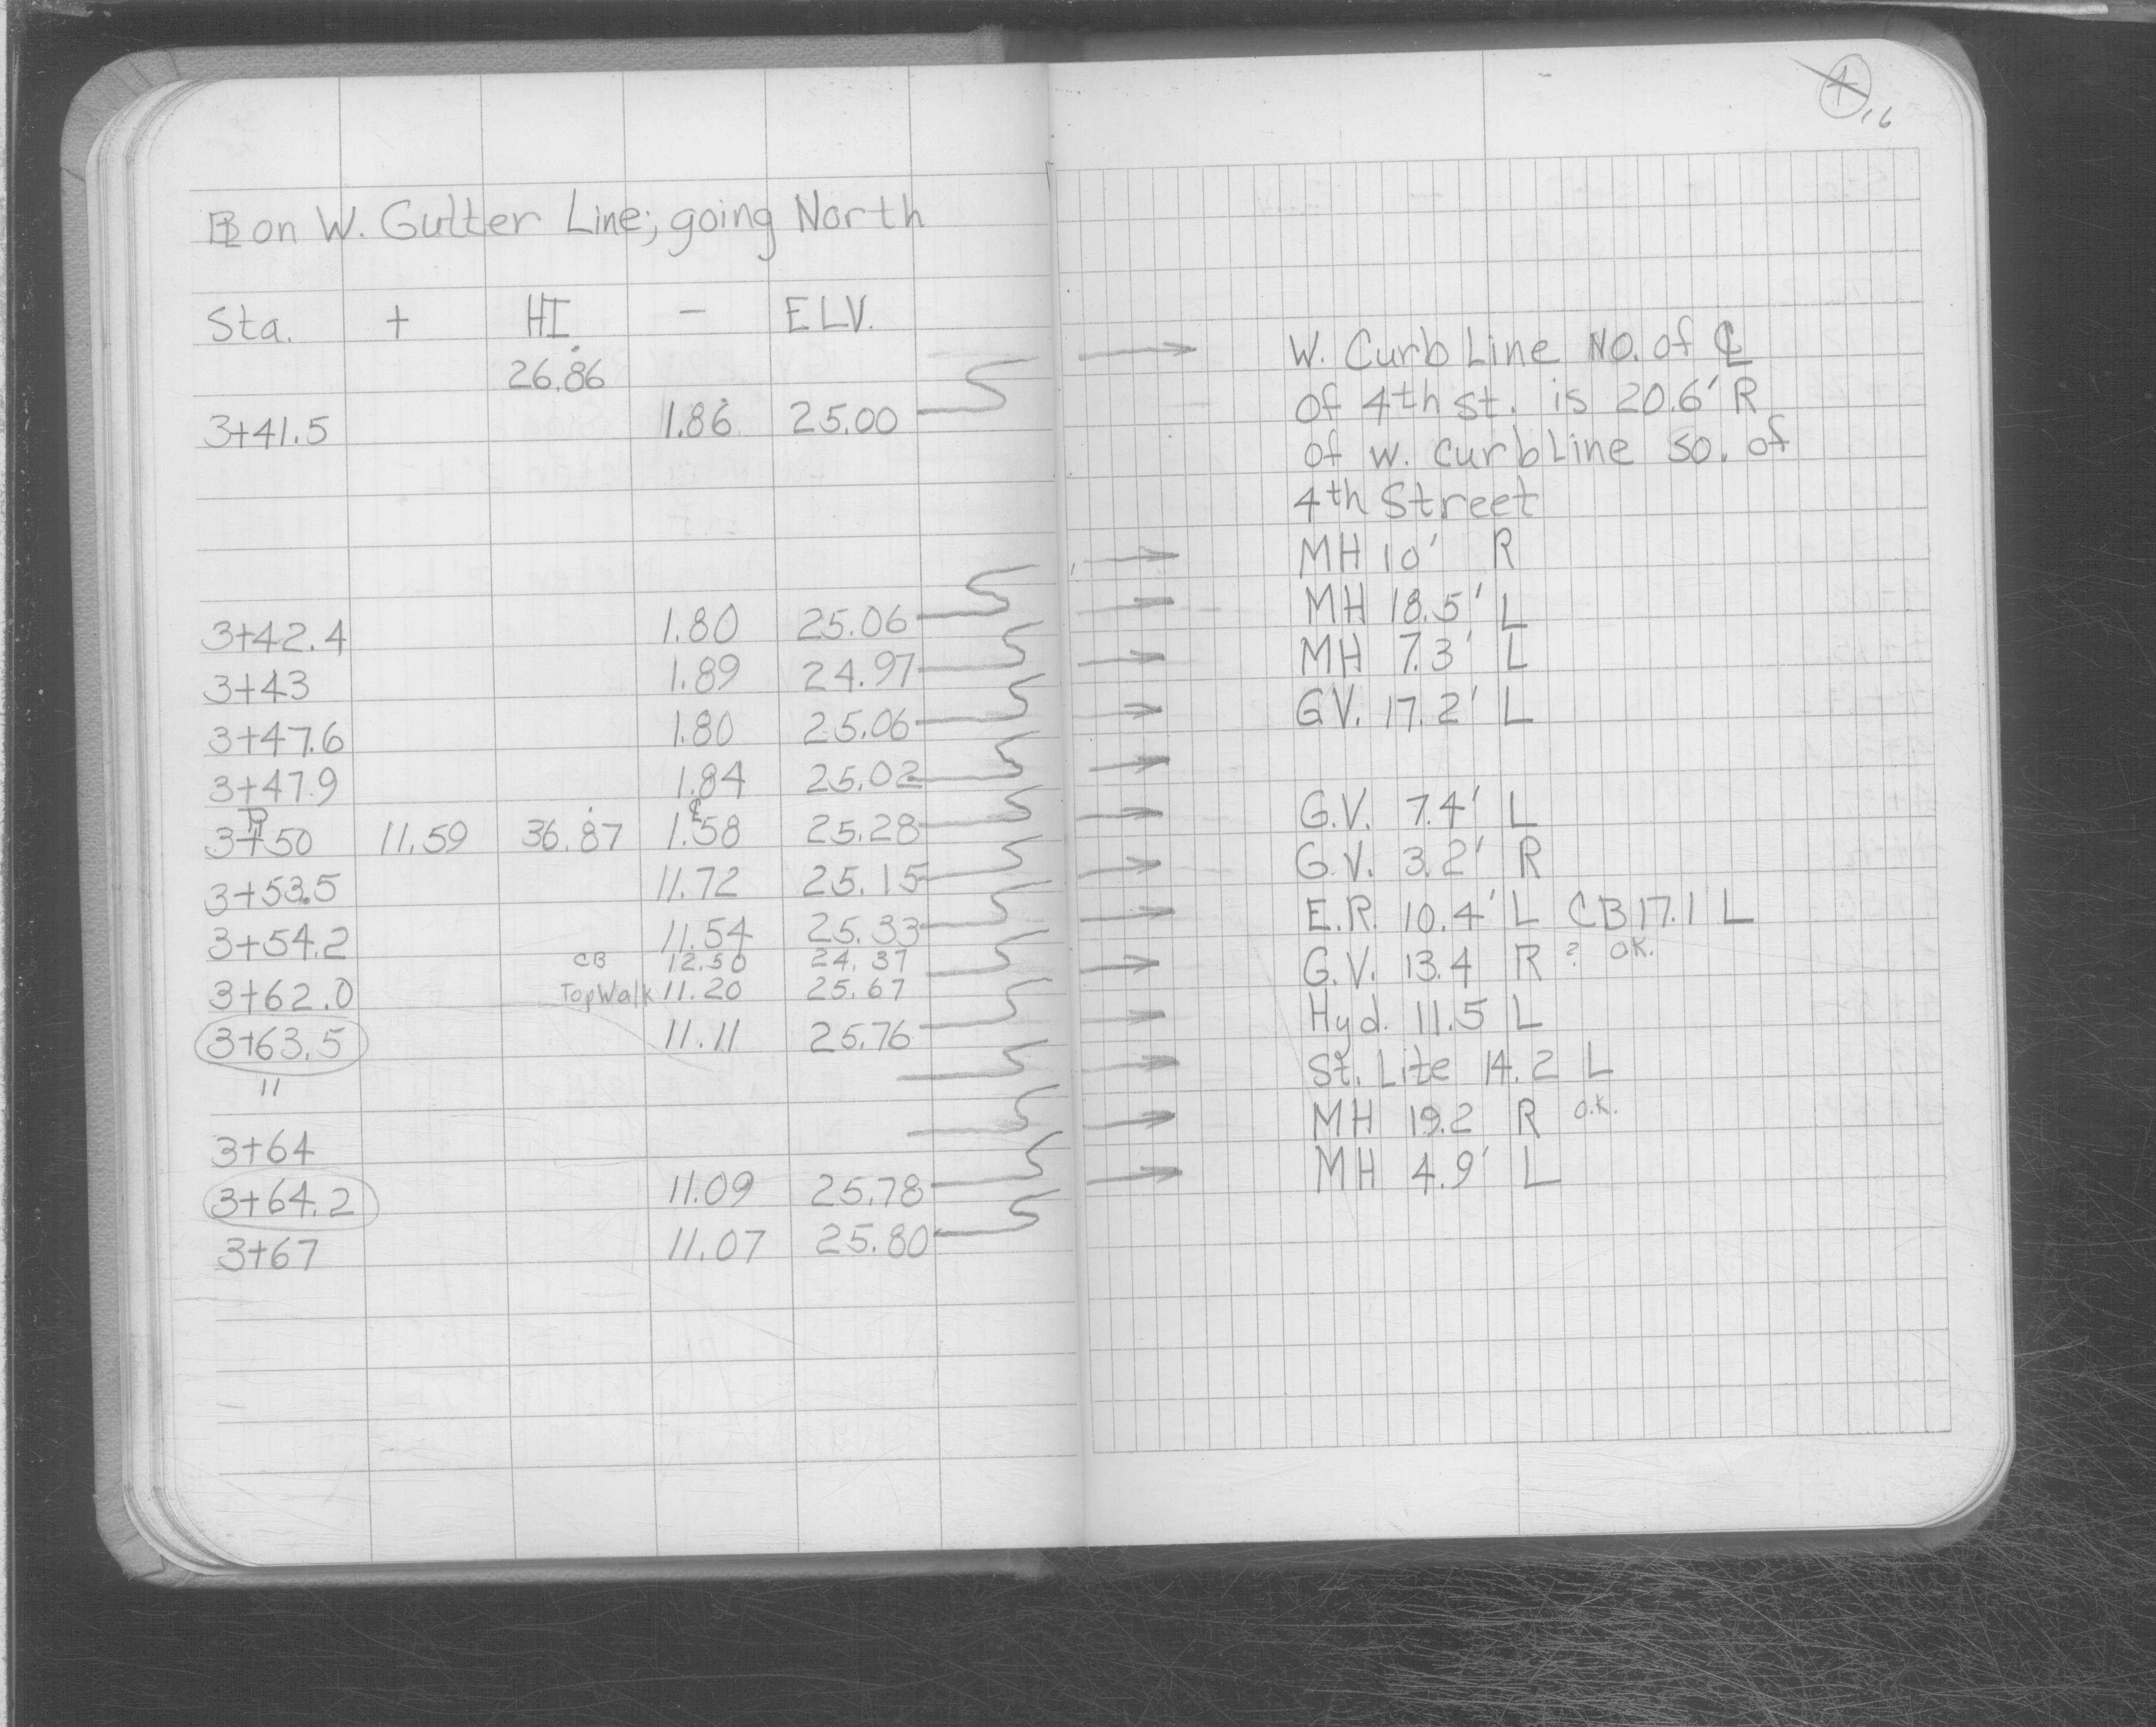 BL on W. Gutter Line; going North
Sta. + HI - ELV.
26.86
3+41.5 1.86 25.00
3+42.4 1.80 25.06
3+43 1.89 24.97
3+47.6 1.80 25.06
3+47.9 1.84 25.02
3+50 11.59 36.87 1.58 25.28
3+53.5 11.72 25.15
3+54.2 11.54 25.33
CB 12.50 24.37
3+62.0 Top Walk 11.20 25.67
3+63.5 11.11 25.76
"
3+64
3+64.2 11.09 25.78
3+67 11.07 25.80
16
W. Curb Line NO. of ℄
of 4th st. is 20.6' R
of W. curb Line SO. of
4th Street
MH 10' R
MH 18.5' L
MH 7.3' L
GV. 17.2' L
G.V. 7.4' L
G.V. 3.2' R
E.R. 10.4' L CB 17.1 L
G.V. 13.4 R ? OK.
Hyd. 11.5 L
St. Lite 14.2 L
MH 19.2 R O.K.
MH 4.9' L